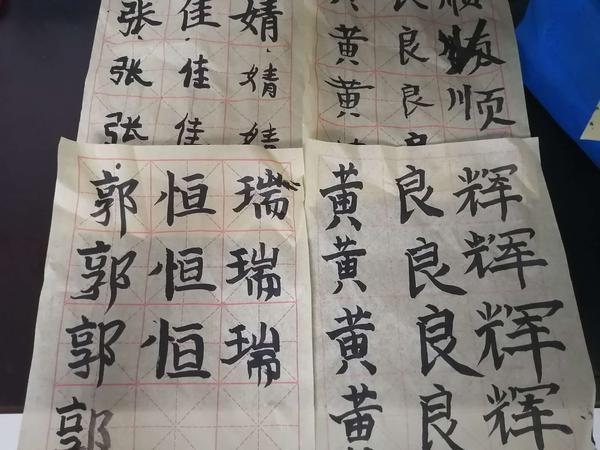 张佳婧
张佳婧
张佳婧
黄良顺
黄良
黄良顺
郭恒瑞
郭恒瑞
郭恒瑞
郭
黄良辉
黄良辉
黄良辉
黄良辉